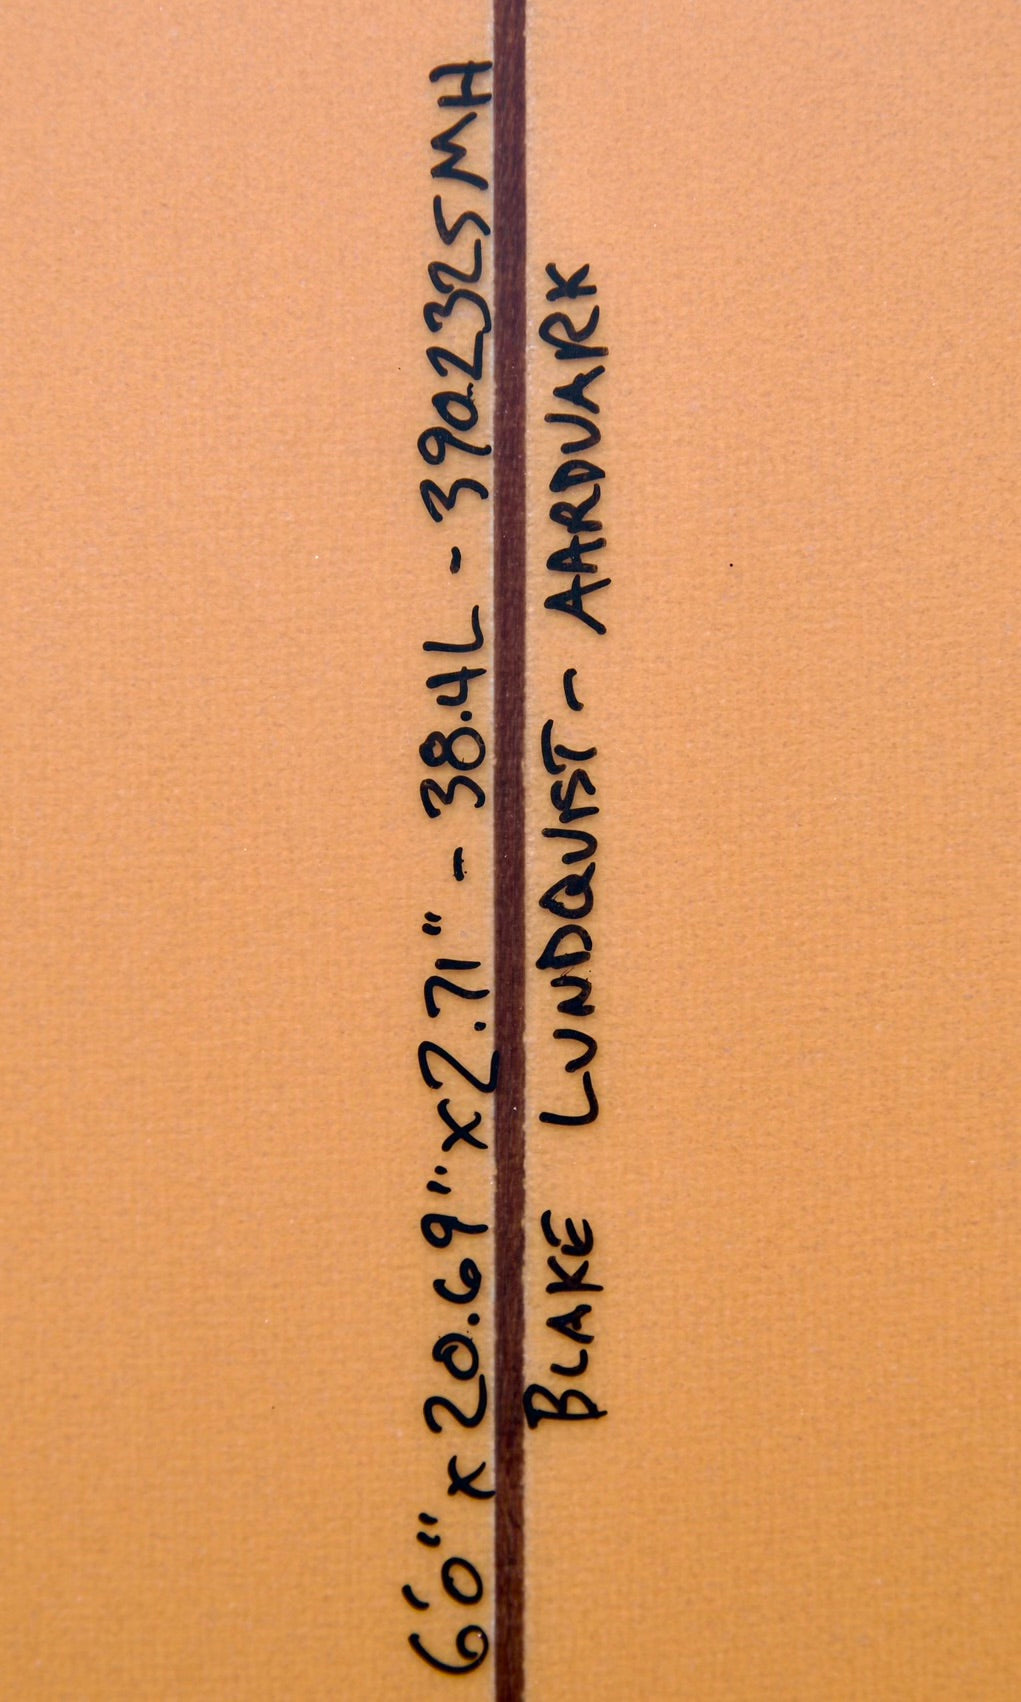 6'0" x 20.69" x 2.71" - 38.4L - 3902325MH
BLAKE LUNDQUIST - AARDVARK